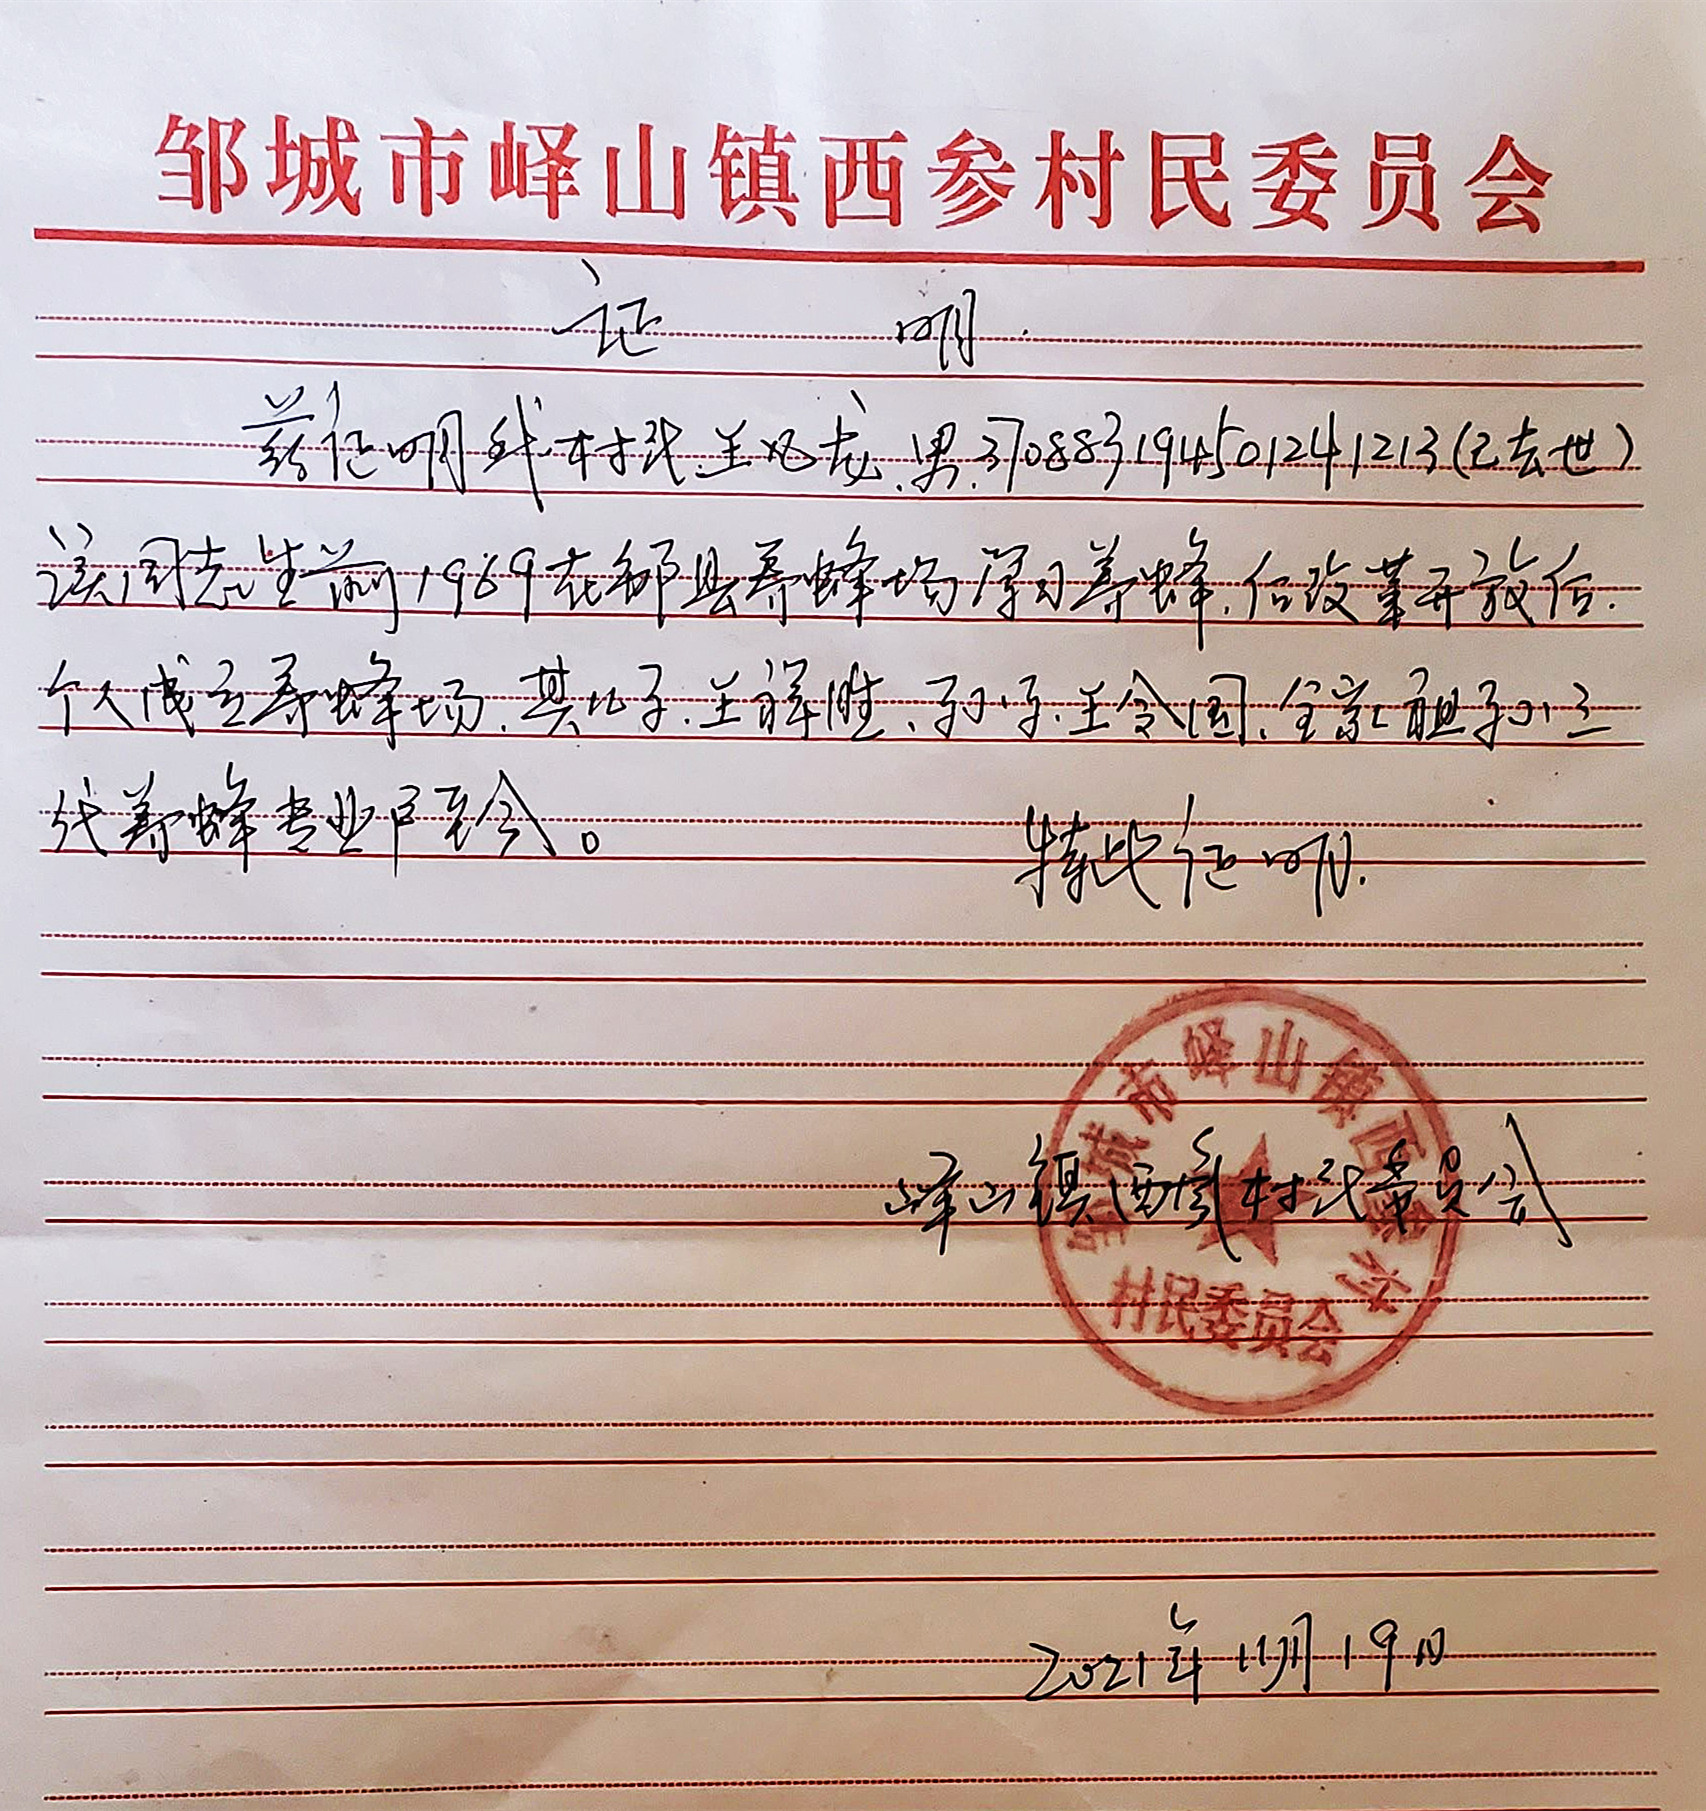 邹城市峄山镇西参村民委员会
证 明
兹证明我村民.王凤龙.男.370883194501241213(已去世)
该同志生前1969在邹县养蜂场学习养蜂.后改革开放后.
个人成立养蜂场.其儿子.王祥胜.孙子.王令国.全家祖孙三
代养蜂专业户至今。
特此证明.
峄山镇西参村民委员会
城市峄山镇西
村
村民委员会
2021年11月19日